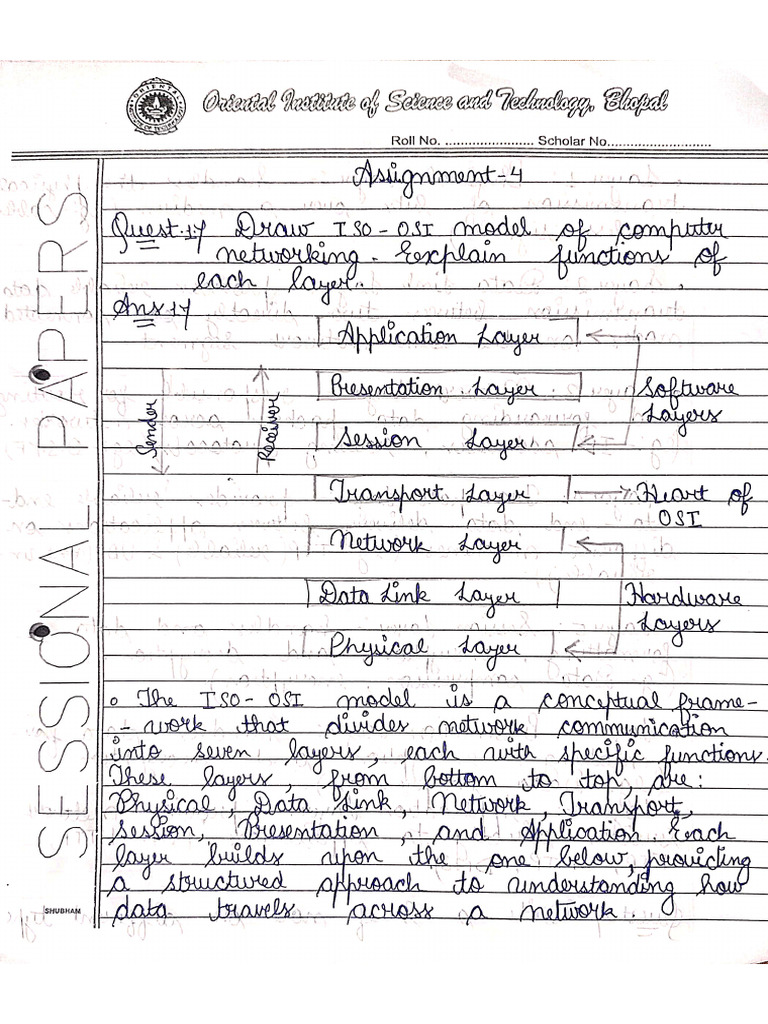 Oriental Institute of Science and Technology, Bhopal
Roll No. ........................ Scholar No............................
Assignment-4
Quest.1) Draw ISO-OSI model of computer
networking. Explain functions of
each layer.
Ans.1)
Application Layer
Presentation Layer
Session Layer
Transport Layer
Network Layer
Data Link Layer
Physical Layer
Sender
Receivor
Software
Layers
Heart of
OSI
Hardware
Layers
o The ISO-OSI model is a conceptual frame-
- work that divides network communication
into seven layers, each with specific functions.
These layers, from bottom to top, are:
Physical, Data Link, Network, Transport,
Session, Presentation, and Application. Each
layer builds upon the one below, providing
a structured approach to understanding how
data travels across a network.
SESSIONAL PAPERS
SHUBHAM